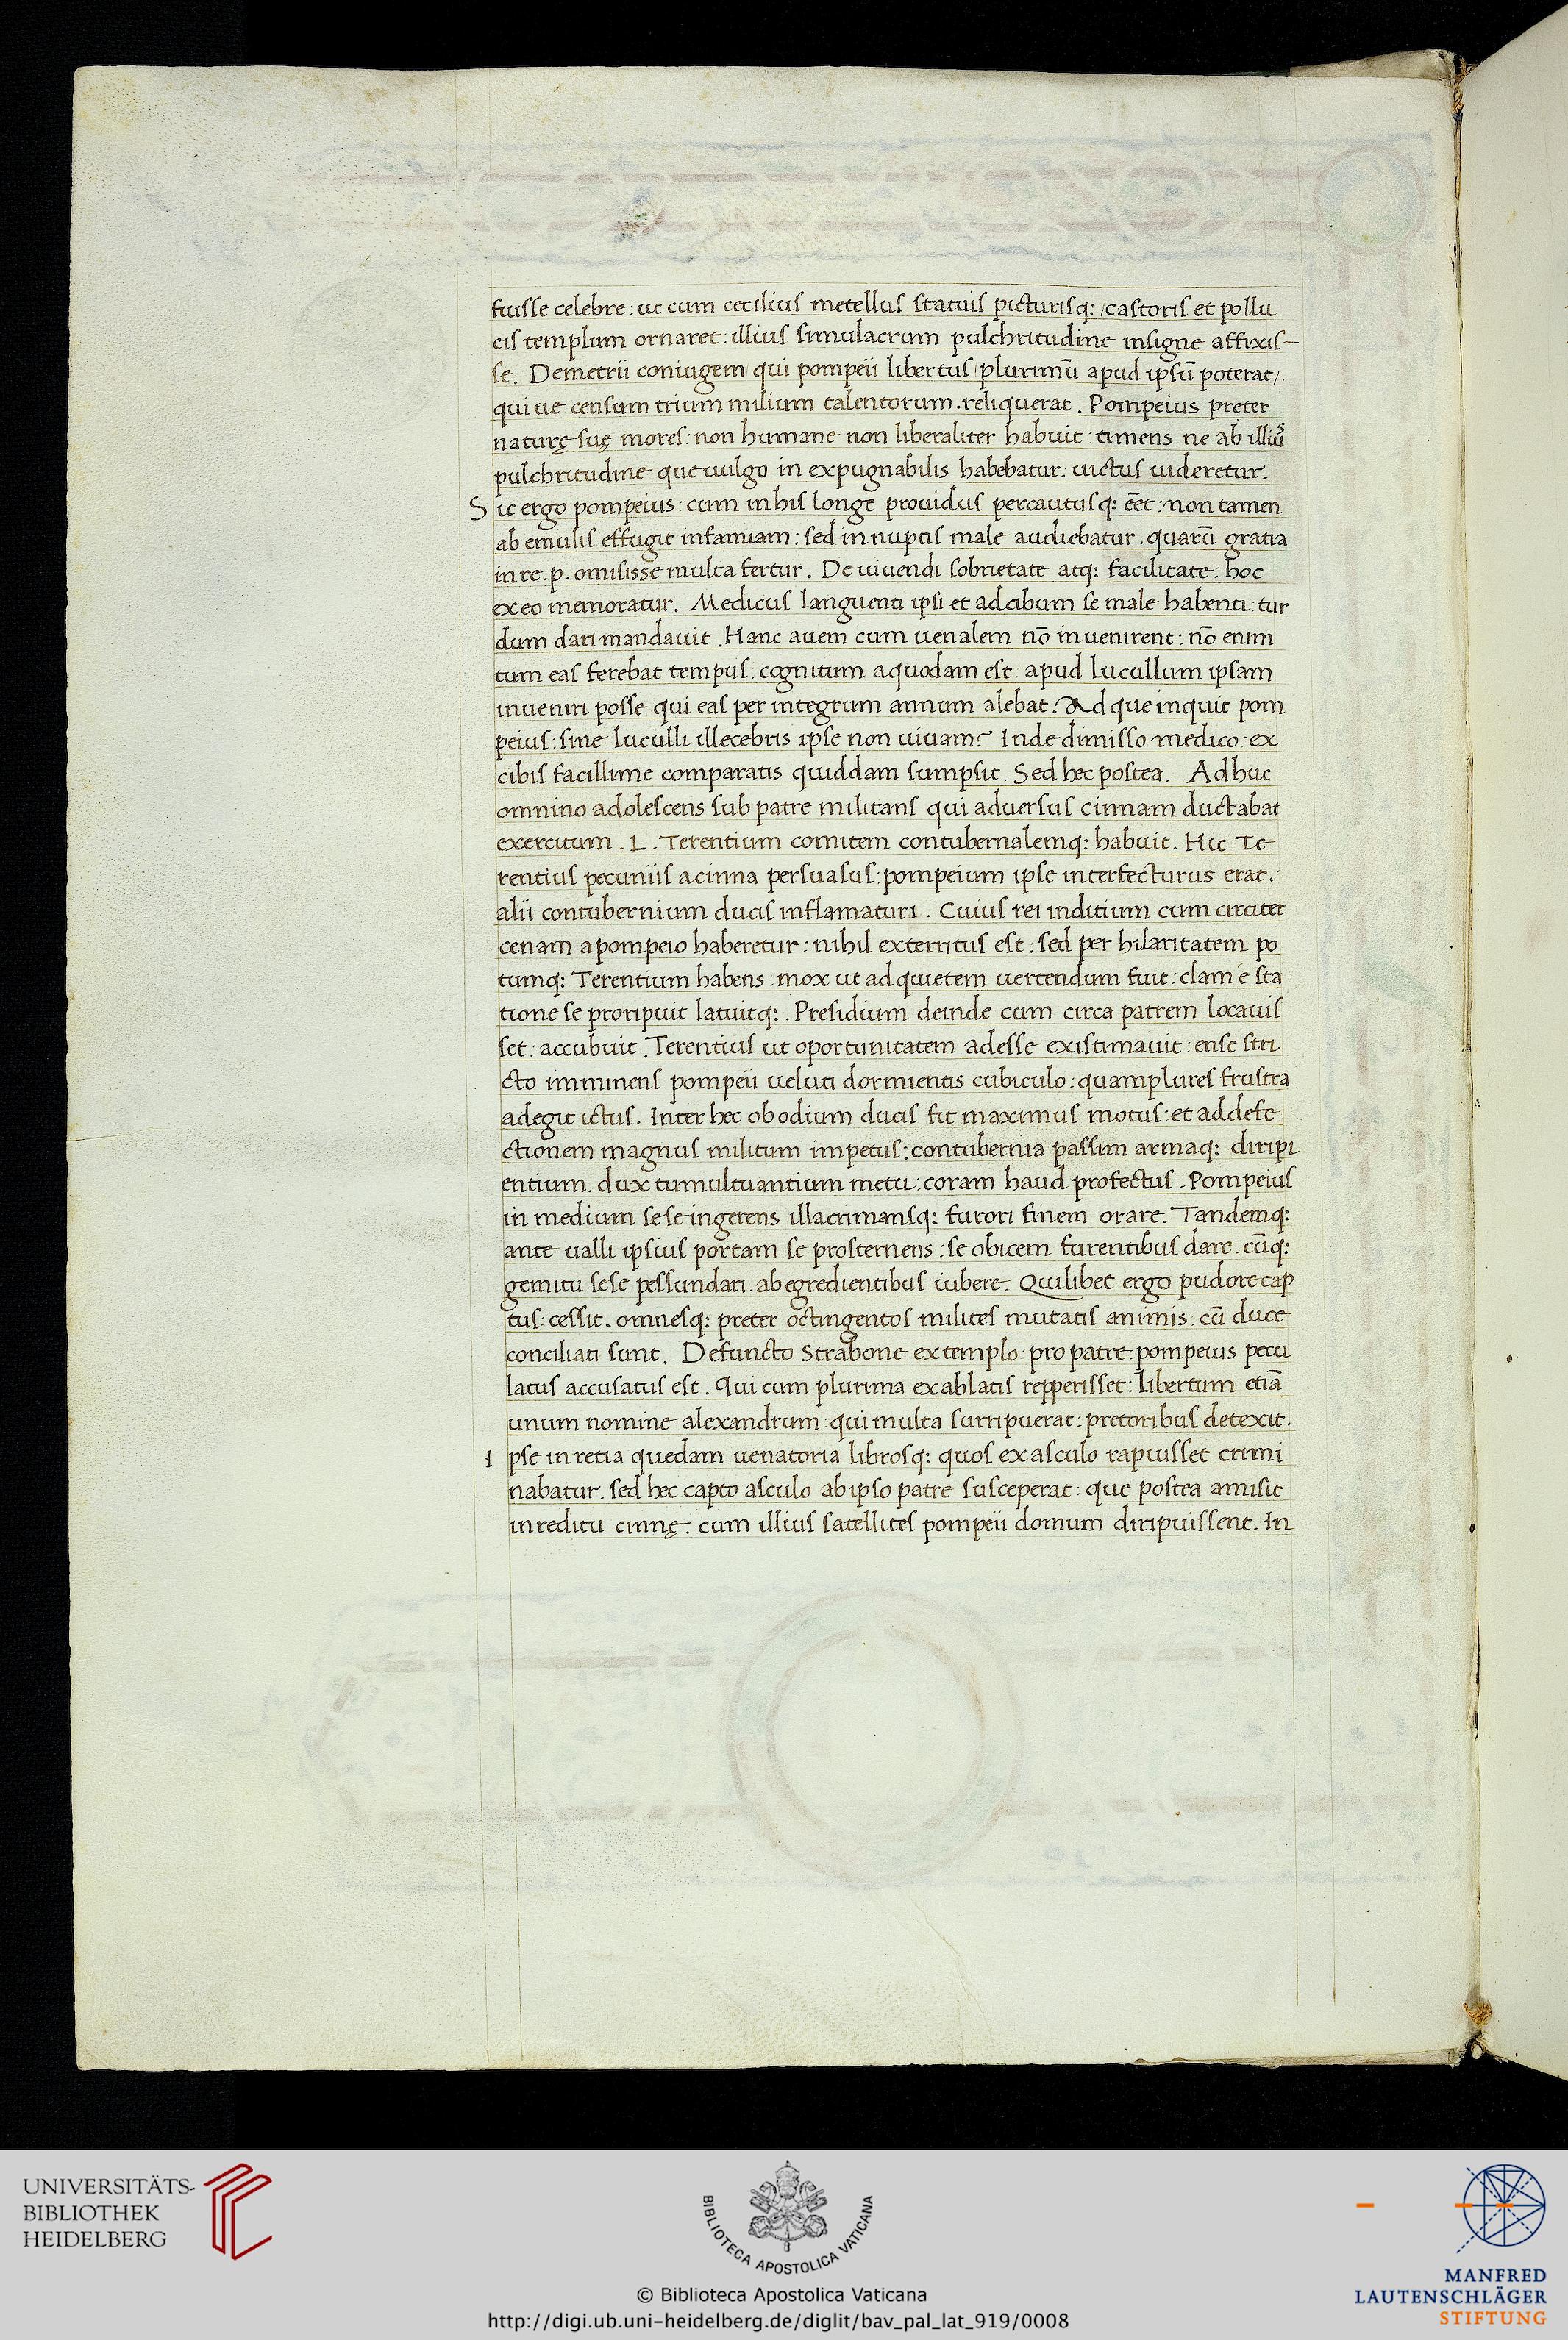 fuisse celebre : ut cum cecilius metellus statuis picturisq: castoris et pollu
cis templum ornaret : illius simulacrum pulchritudine insigne affixis–
se. Demetrii coniugem qui pompeii libertus / plurimū apud ipsū poterat /.
qui ue censum trium milium talentorum . reliquerat . Pompeius preter
naturę suę mores : non humane non liberaliter habuit : timens ne ab illiuꝰ
pulchritudine que uulgo in expugnabilis habebatur . uictus uideretur .
Sic ergo pompeius : cum in his longe prouidus percautusq: eēt : non tamen
ab emulis effugit infamiam : sed in nuptis male audiebatur . quarū gratia
in re . p . omisisse multa fertur . De uiuendi sobrietate atq: facilitate : hoc
ex eo memoratur . Medicus languenti ipsi et ad cibum se male habenti : tur
dum dari mandauit . Hanc auem cum uenalem nō inuenirent : nō enim
tum eas ferebat tempus : cognitum a quodam est . apud Lucullum ipsam
inueniri posse qui eas per integrum annum alebat . Ad que inquit pom
peius : sine luculli illecebris ipse non uiuam ? Inde dimisso medico : ex
cibis facillime comparatis quiddam sumpsit . Sed hec postea . Adhuc
omnino adolescens sub patre militans qui aduersus cinnam ductabat
exercitum . L . Terentium comitem contubernalemq: habuit . Hic Te
rentius pecuniis a cinna persuasus : pompeium ipse interfecturus erat .
alii contubernium ducis inflamaturi . Cuius rei inditium cum circiter
cenam a pompeio haberetur : nihil exterritus est : sed per hilaritatem po
tumq: Terentium habens : mox ut ad quietem uertendum fuit : clam e sta
tione se proripuit latuitq: . Presidium deinde cum circa patrem locauis
set : accubuit . Terentius ut oportunitatem adesse existimauit : ense stri
cto imminens pompeii ueluti dormientis cubiculo : quamplures frustra
adegit ictus . Inter hec ob odium ducis fit maximus motus : et ad defe
ctionem magnus militum impetus : contubernia passim armaq: diripi
entium . dux tumultuantium metu : coram haud profectus . Pompeius
in medium sese ingerens illacrimansq: furori finem orare . Tandemq:
ante ualli ipsius portam se prosternens : se obicem furentibus dare . cūq:
gemitu sese pessundari . ab egredientibus iubere . Quilibet ergo pudore cap
tus : cessit . omnesq: preter octingentos milites mutatis animis : cū duce
conciliati sunt . Defuncto Strabone extemplo : pro patre pompeius pecu
latus accusatus est . Qui cum plurima ex ablatis repperisset : libertum etiā
unum nomine alexandrum : qui multa surripuerat : pretoribus detexit .
Ipse in retia quedam uenatoria librosq: quos ex asculo rapuisset crimi
nabatur . sed hec capto asculo ab ipso patre susceperat : que postea amisit
in reditu cinnę . cum illius satellites pompeii domum diripuissent . In
UNIVERSITÄTS-
BIBLIOTHEK
HEIDELBERG
BIBLIOTECA APOSTOLICA VATICANA
© Biblioteca Apostolica Vaticana
http://digi.ub.uni-heidelberg.de/diglit/bav_pal_lat_919/0008
MANFRED
LAUTENSCHLÄGER
STIFTUNG